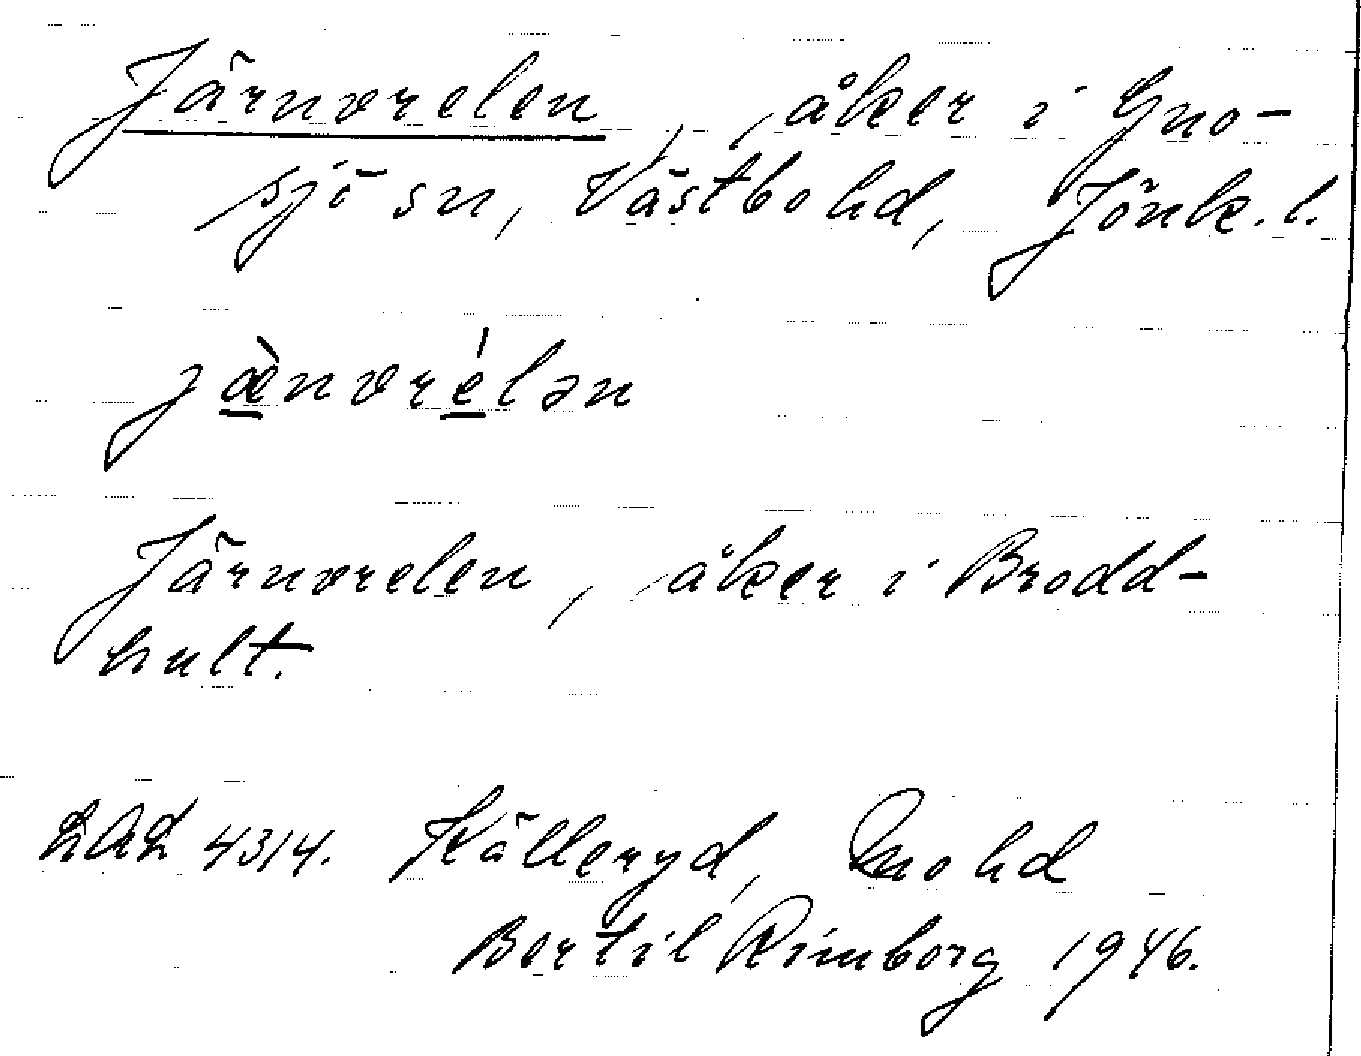 Järnvrelen, åker i Gno-
sjö sn, Västbo hd, Jönk. l.
jæ̀nvrélən
Järnvrelen, åker i Brodd-
hult.
LAL 4314. Källeryd, Mo hd
Bertil Rimborg 1946.